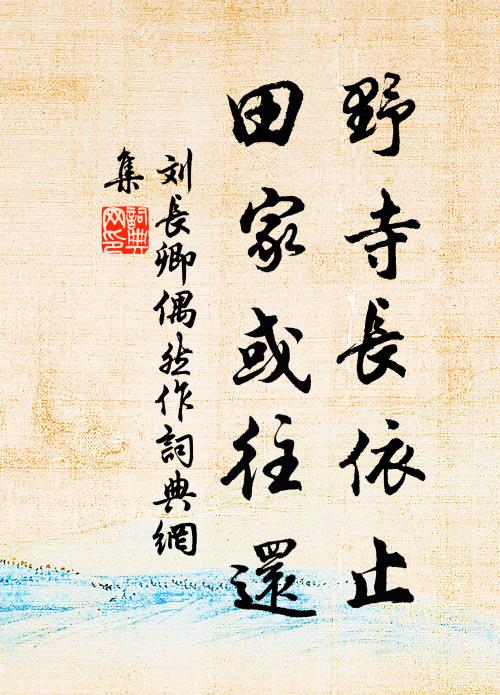 野寺長依止
田家或往還
刘長卿偶然作詞典網
集
詞典網印